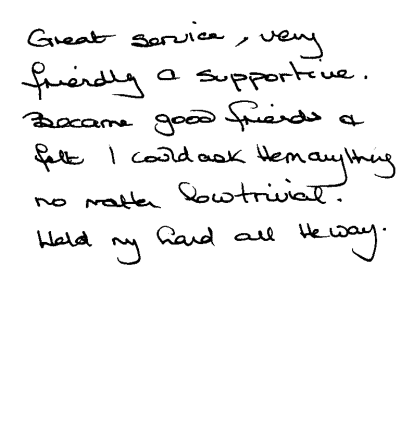 Great service, very
friendly & supportive.
Became good friends &
felt I could ask them anything
no matter how trivial.
Held my hand all the way.